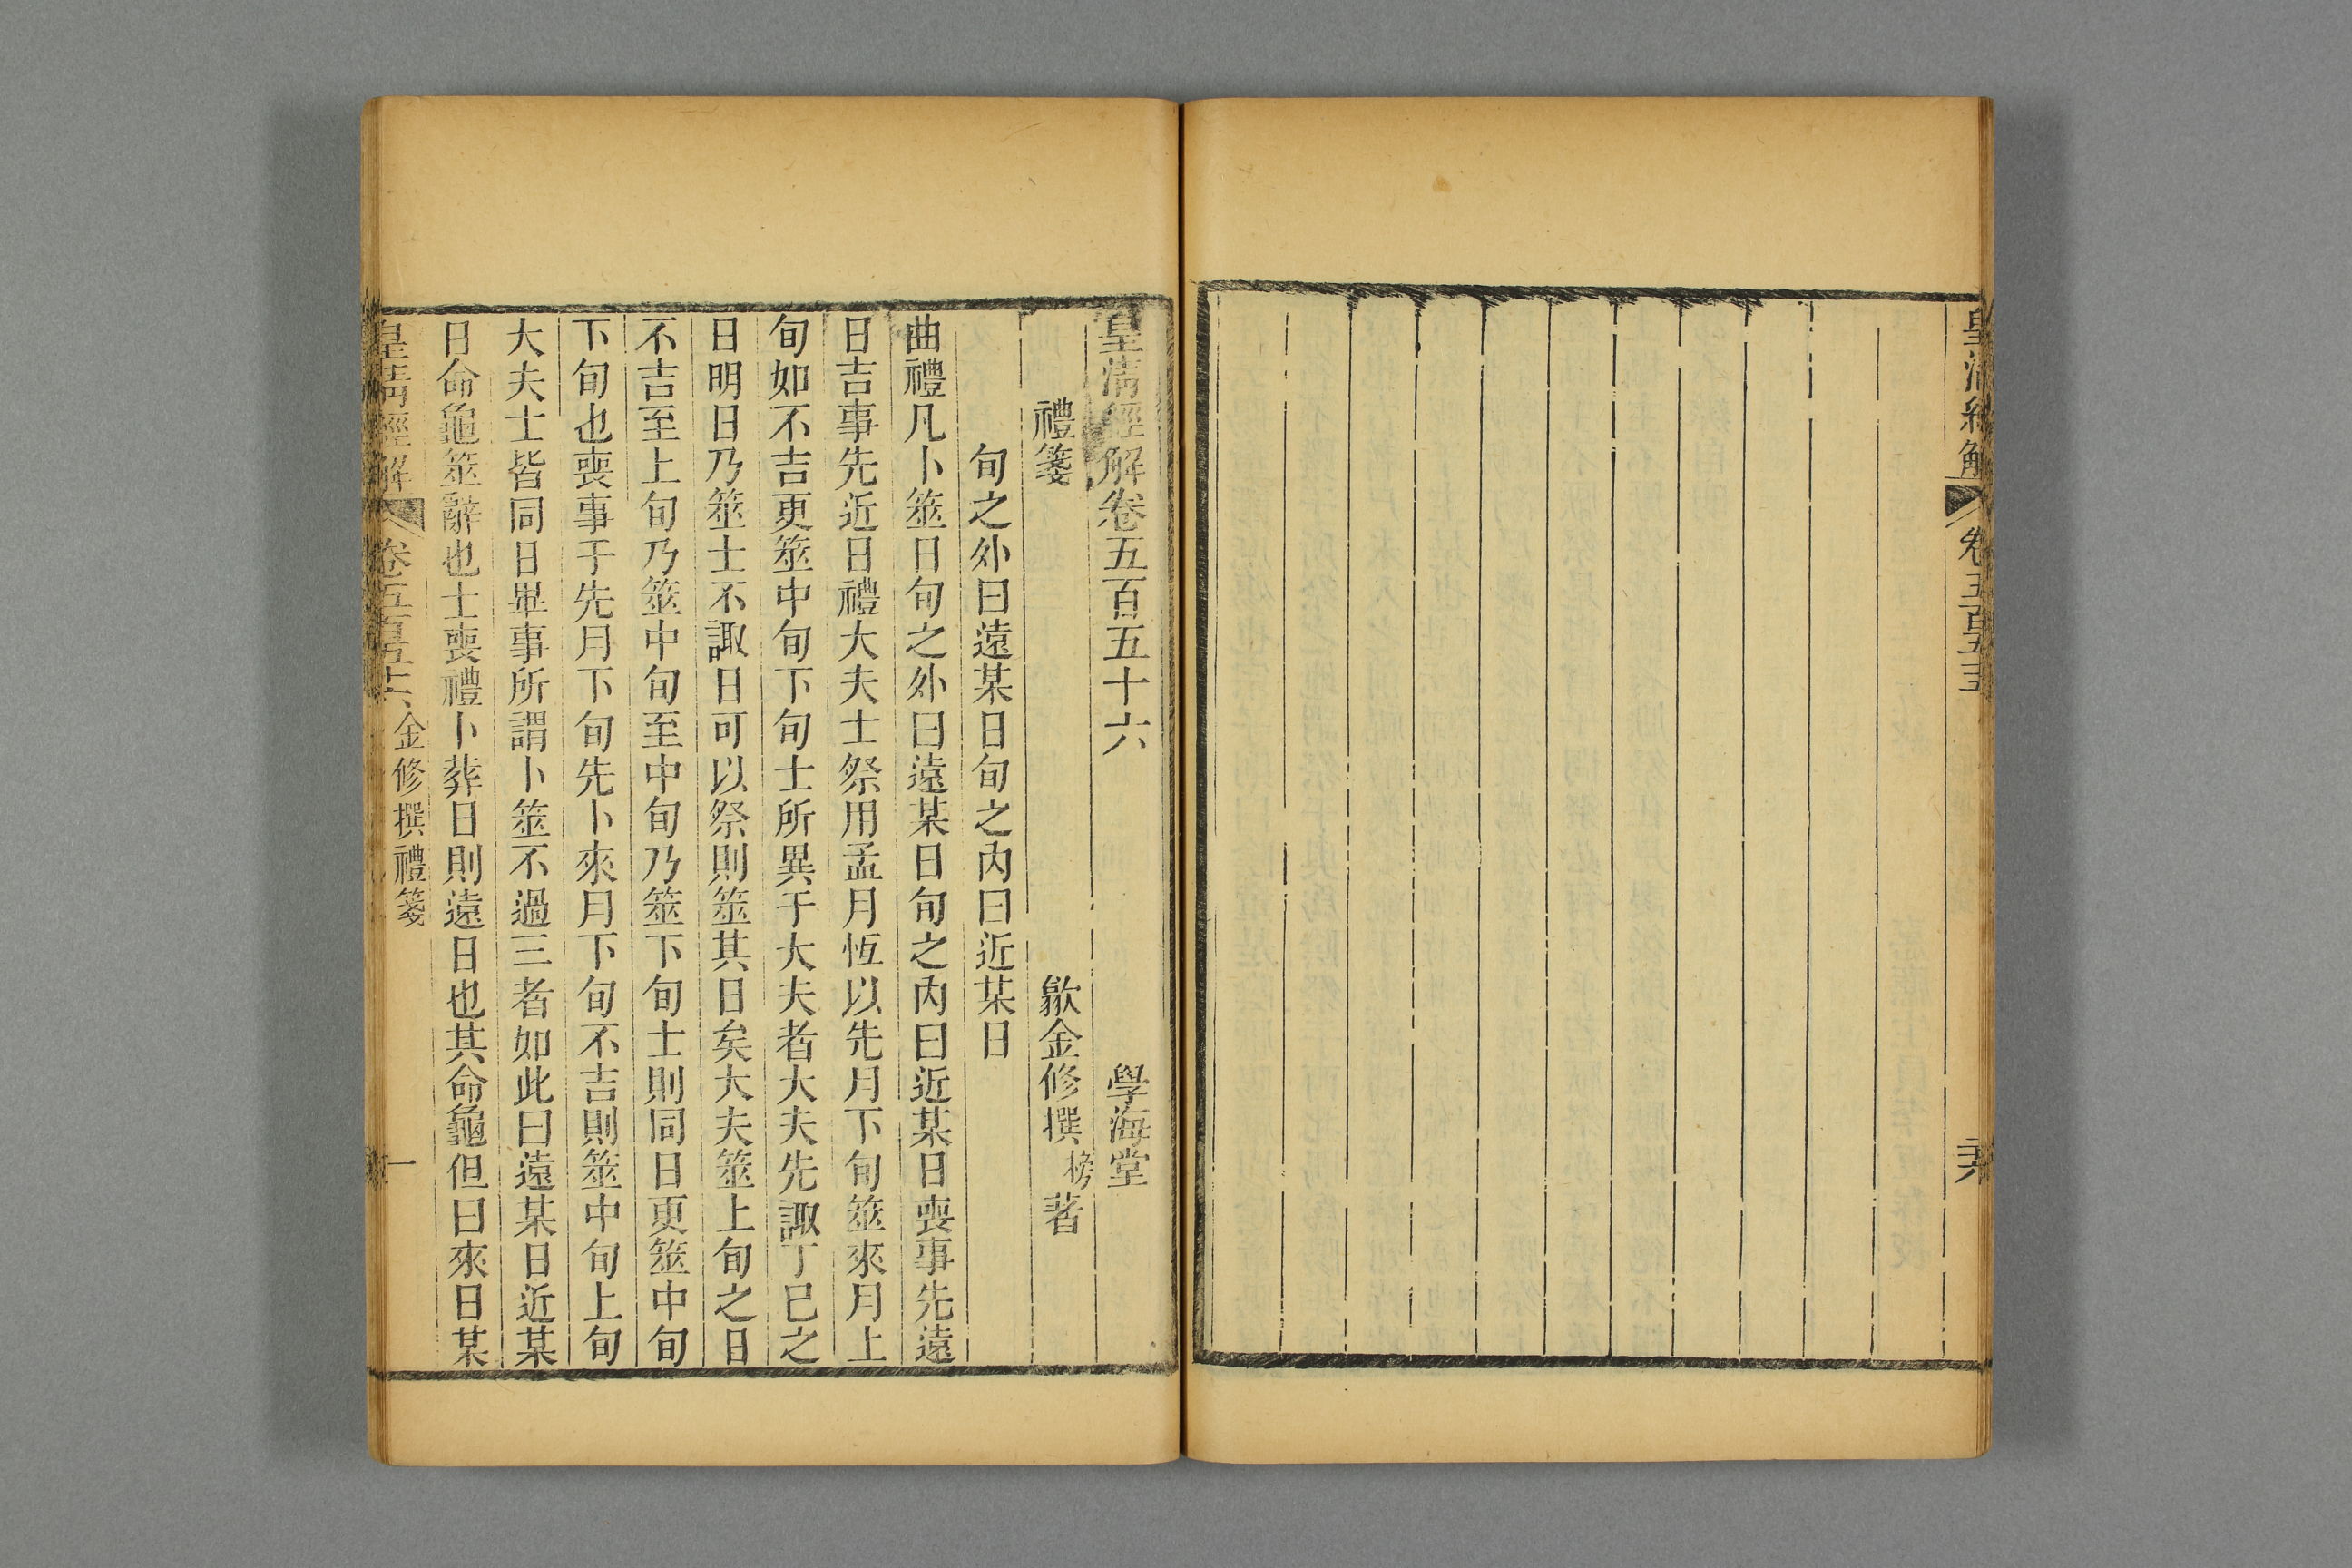 皇清經解
卷五百五十五
二十六
皇清經解卷五百五十六
學海堂
禮箋
歙金修撰榜著
旬之外曰遠某日旬之內曰近某日
曲禮凡卜筮日旬之外曰遠某日旬之內曰近某日喪事先遠
日吉事先近日禮大夫士祭用孟月恆以先月下旬筮來月上
旬如不吉更筮中旬下旬士所異于大夫者大夫先諏丁巳之
日明日乃筮士不諏日可以祭則筮其日矣大夫筮上旬之日
不吉至上旬乃筮中旬至中旬乃筮下旬士則同日更筮中旬
下旬也喪事于先月下旬先卜來月下旬不吉則筮中旬上旬
大夫士皆同日畢事所謂卜筮不過三者如此曰遠某日近某
日命龜筮辭也士喪禮卜葬日則遠日也其命龜但曰來日某
皇清經解
卷五百五十六
金修撰禮箋
一